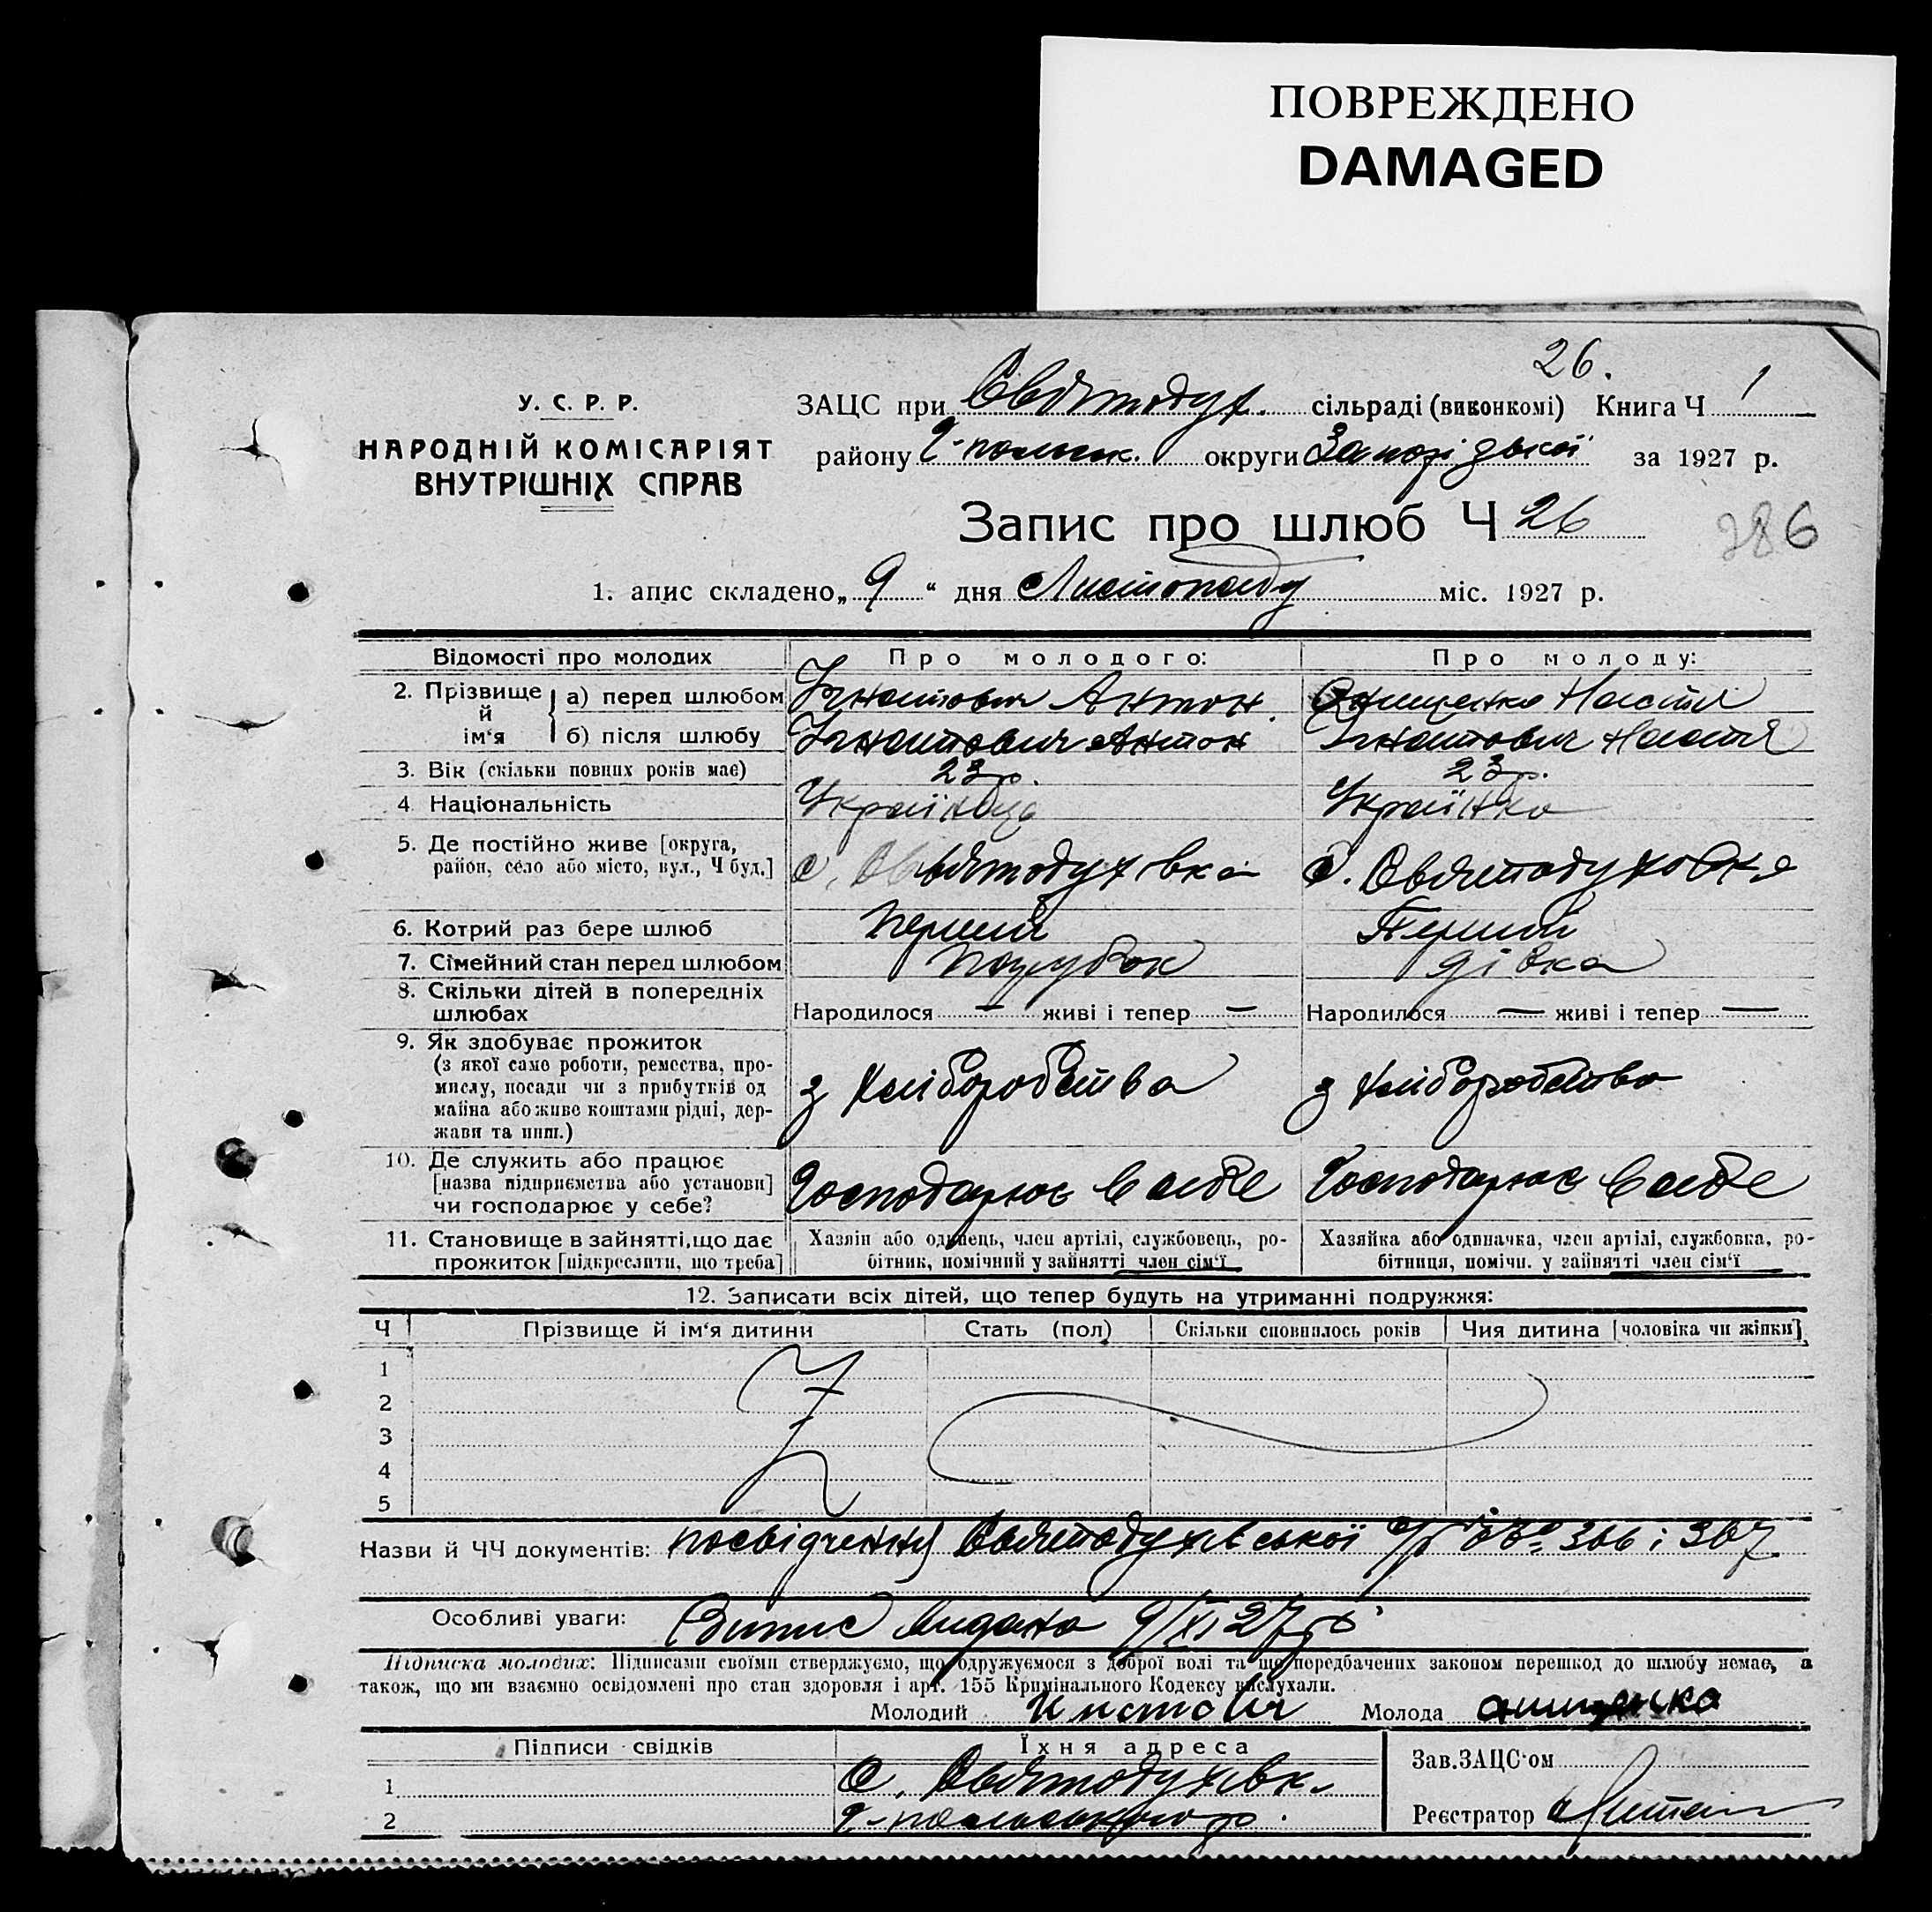 ПОВРЕЖДЕНО
DAMAGED
26.
У. С. Р. Р.
НАРОДНІЙ КОМІСАРІЯТ
ВНУТРІШНІХ СПРАВ
ЗАЦС при Святодух. сільраді (виконкомі) Книга Ч 1
району округи за 1927 р.
Запис про шлюб Ч 26
286
1. апис складено „ 9 “ дня Листопаду міс. 1927 р.
Відомості про молодих Про молодого: Про молоду:
2. Прізвище й ім‘я
а) перед шлюбом Ігнатович Антон. Онищенко Настя
б) після шлюбу Ігнатович Антон Ігнатович Настя
3. Вік (скільки повних років має) 23 р. 23 р.
4 Національність Українець Українка
5. Де постійно живе [округа,
район, село або місто, вул., Ч буд.] с. Святодухівка с. Святодуховка
6. Котрий раз бере шлюб Перший Перший
7. Сімейний стан перед шлюбом Парубок дівка
8. Скільки дітей в попередніх
шлюбах Народилося — живі і тепер — Народилося — живі і тепер —
9. Як здобуває прожиток
(з якої само роботи, ремества, про-
мислу, посади чи з прибутків од
майна або живе коштами рідні, дер-
жави та инш.)
з хліборобства з хліборобства
10. Де служить або працює
[назва підприємства або установи]
чи господарює у себе?
Господарює в себе Господарює в себе
11. Становище в зайнятті, що дає
прожиток [підкреслити, що треба]
Хазяїн або одинець, член артілі, службовець, ро-
бітник, помічний у зайнятті член сім‘ї
Хазяйка або одиначка, член артілі, службовка, ро-
бітниця, помічн. у зайнятті член сім‘ї
12. Записати всіх дітей, що тепер будуть на утриманні подружжя:
Ч Прізвище й ім‘я дитини Стать (пол) Скільки сповнилось років Чия дитина [чоловіка чи жінки]
1
2
3
4
5
Назви й ЧЧ документів: посвідчення Святодухівської с/р 306 і 307
Особливі уваги: Витис видано 9/XI 27 р.
Підписка молодих: Підписами своїми стверджуємо, що одружуємося з доброї волі та що передбачених законом перешкод до шлюбу немає, а
також, що ми взаємно освідомлені про стан здоровля і арт. 155 Кримінального Кодексу вислухали.
Молодий Молода
Підписи свідків Їхня адреса
1 с. Святодухівк.
2
Зав. ЗАЦС‘ом
Реєстратор